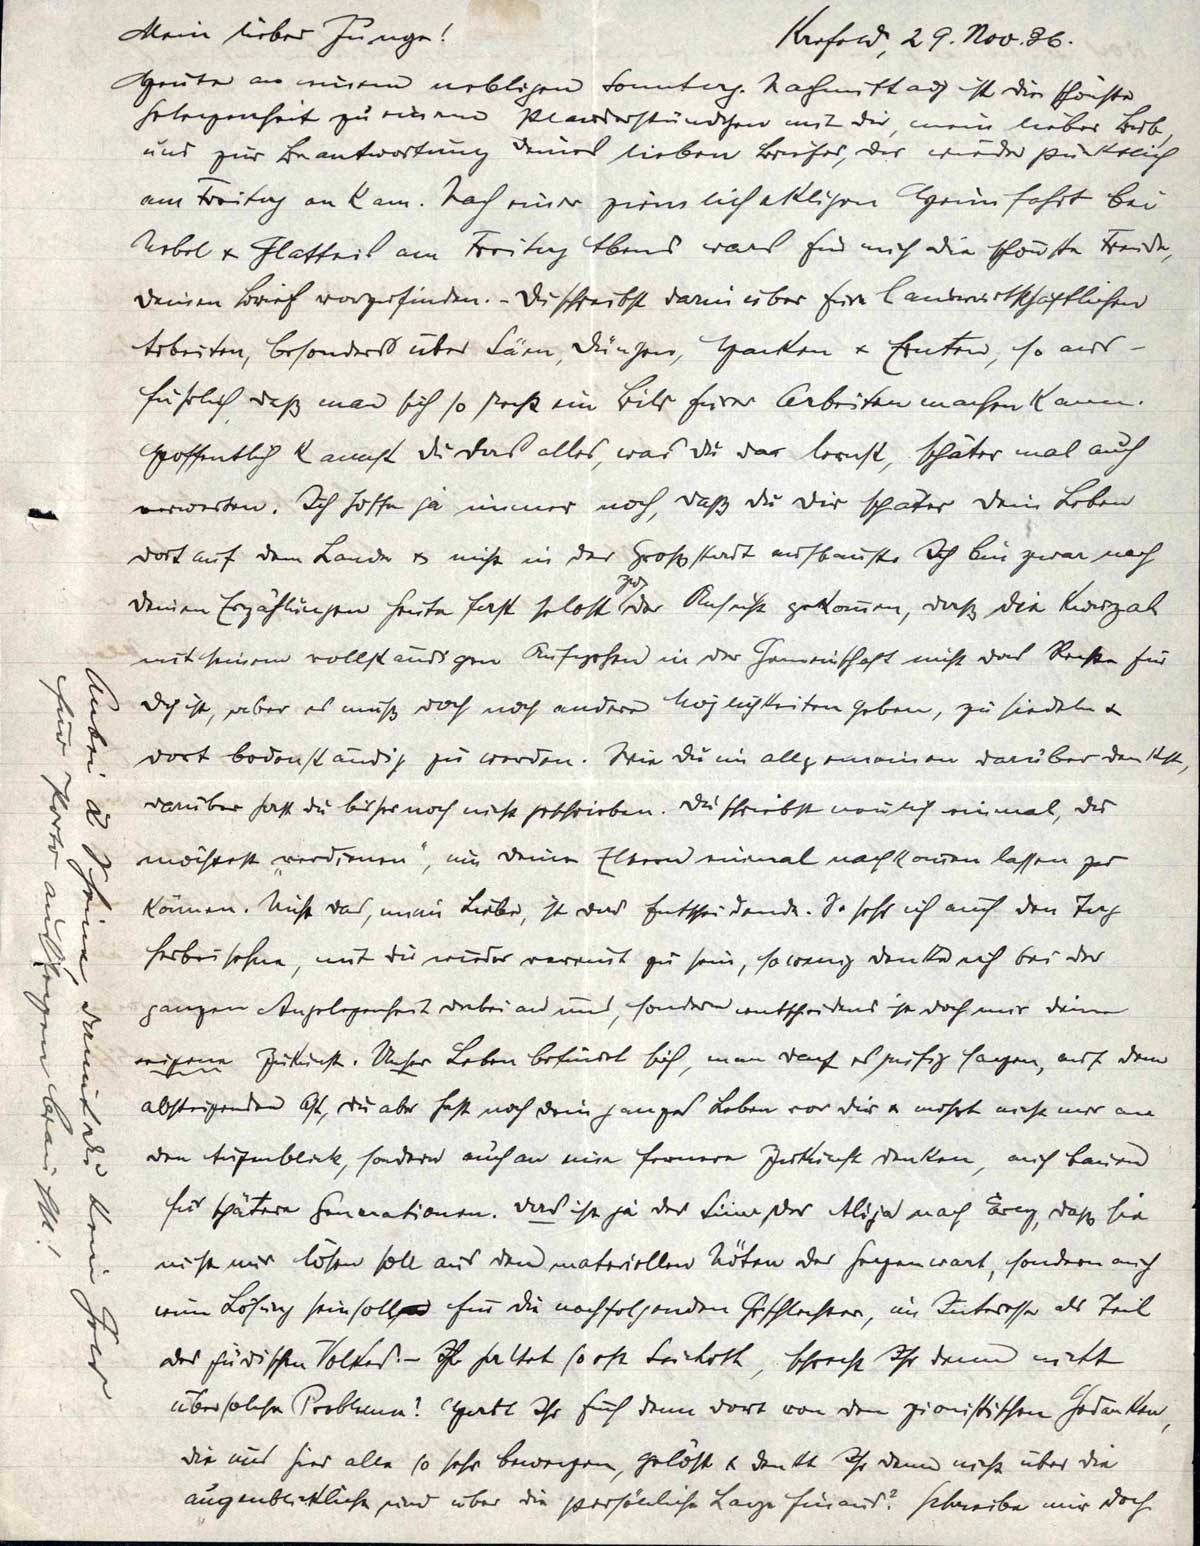 Krefeld, 29. Nov. 36.
Mein lieber Junge!
Heute an einem nebligen Sonntag-Nachmittag ist die schönste
Gelegenheit zu einem Plauderstündchen mit dir, mein lieber Bub,
und zur Beantwortung deines lieben Briefes, der wieder pünktlich
am Freitag ankam. Nach einer ziemlich ekligen Heimfahrt bei
Nebel & Glatteis am Freitag Abend war's für mich die schönste Freude,
deinen Brief vorzufinden. - Du schreibst darin über Eure landwirtschaftlichen
Arbeiten, besonders über Säen, Düngen, Hacken & Ernten, so aus-
führlich, daß man sich so recht ein Bild Eurer Arbeiten machen kann.
Hoffentlich kannst du das alles, was du da lernst, später mal auch
verwerten. Ich hoffe ja immer noch, daß du dir später dein Leben
dort auf dem Lande & nicht in der Großstadt aufbaust. Ich bin zwar nach
deinen Erzählungen heute fast selbst zu der Ansicht gekommen, daß die Kwuzah
mit seinem vollständigen Aufgehen in der Gemeinschaft nicht das Rechte für
dich ist, aber es muß doch noch andere Möglichkeiten geben, zu siedeln &
dort bodenständig zu werden. Wie du im allgemeinen darüber denkst,
darüber hast du bisher noch nicht geschrieben. Du schriebst neulich einmal, du
möchtest „verdienen", um deine Eltern einmal nachkommen lassen zu
können. Nicht das, mein Lieber, ist das Entscheidende. So sehr ich auch den Tag
herbeisehne, mit dir wieder vereint zu sein, so wenig denke ich bei der
ganzen Angelegenheit dabei an uns, sondern entscheidend ist doch nur deine
eigene Zukunft. Unser Leben befindet sich, man darf es ruhig sagen, auf dem
absteigenden Ast, du aber hast noch dein ganzes Leben vor dir & mußt nicht nur an
den Augenblick, sondern auch an eine fernere Zukunft denken, auch bauen
für spätere Generationen. Das ist ja der Sinn der Alija nach Erez, daß sie
nicht nur lösen soll aus den materiellen Nöten der Gegenwart, sondern auch
eine Lösung sein soll für die nachfolgenden Geschlechter, im Interesse als Teil
des jüdischen Volkes. - Ihr haltet so oft Sichoth, sprecht Ihr denn nicht
über solche Probleme? Habt Ihr Euch denn dort von den zionistischen Gedanken,
die uns hier alle so sehr bewegen, gelöst & denkt Ihr denn nicht über die
augenblickliche und über die persönliche Lage hinaus? Schreibe mir doch
Anbei 2 Scheine, damit du kein Geld
für Porto auslegen brauchst!